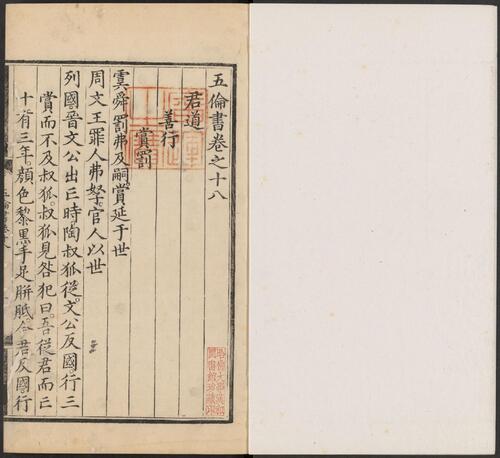 五倫書卷之十八
君道
善行
賞罰
虞舜罰弗及嗣賞延于世
周文王罪人弗孥官人以世
列國晉文公出亡時陶叔狐從文公反國行三
賞而不及叔狐叔狐見咎犯曰吾從君而亡
十有三年顏色黎黑手足胼胝今君反國行